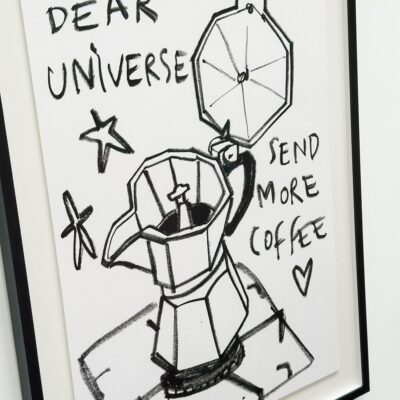 DEAR
UNIVERSE
SEND
MORE
COFFEE